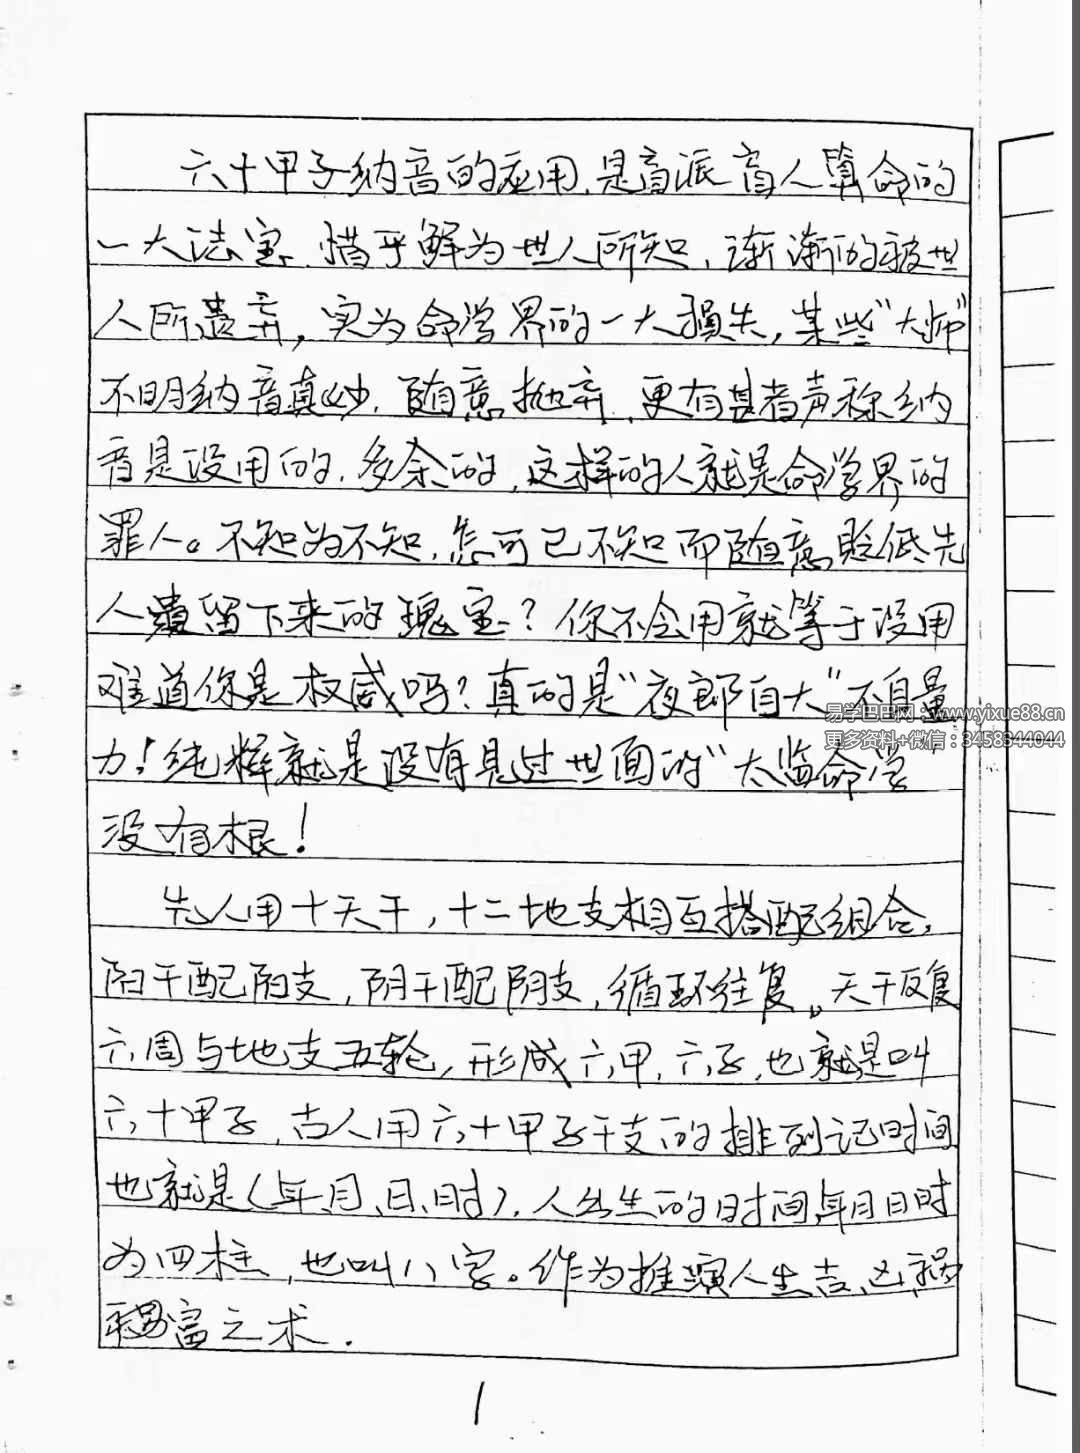 六十甲子纳音的应用,是盲派盲人算命的
一大法宝.惜乎鲜为世人所知,渐渐的被世
人所遗弃,实为命学界的一大损失,某些"大师"
不明纳音真妙.随意抛弃.更有甚者声称纳
音是没用的.多余的,这样的人就是命学界的
罪人。不知为不知,怎可已不知而随意贬低先
人遗留下来的瑰宝?你不会用就等于没用
难道你是权威吗?真的是"夜郎自大"不自量
力!纯粹就是没有见过世面的"太监命学"
没有根!
先人用十天干,十二地支相互搭配组合,
阳干配阳支,阴干配阴支,循环往复。天干反复
六周与地支五轮,形成六甲.六子,也就是叫
六十甲子,古人用六十甲子干支的排列记时间
也就是(年、月、日、时).人出生的时间年月日时
为四柱,也叫八字。作为推演人生吉、凶、祸
福富之术.
1
易学巴巴网:www.yixue88.cn
更多资料+微信:3458344044